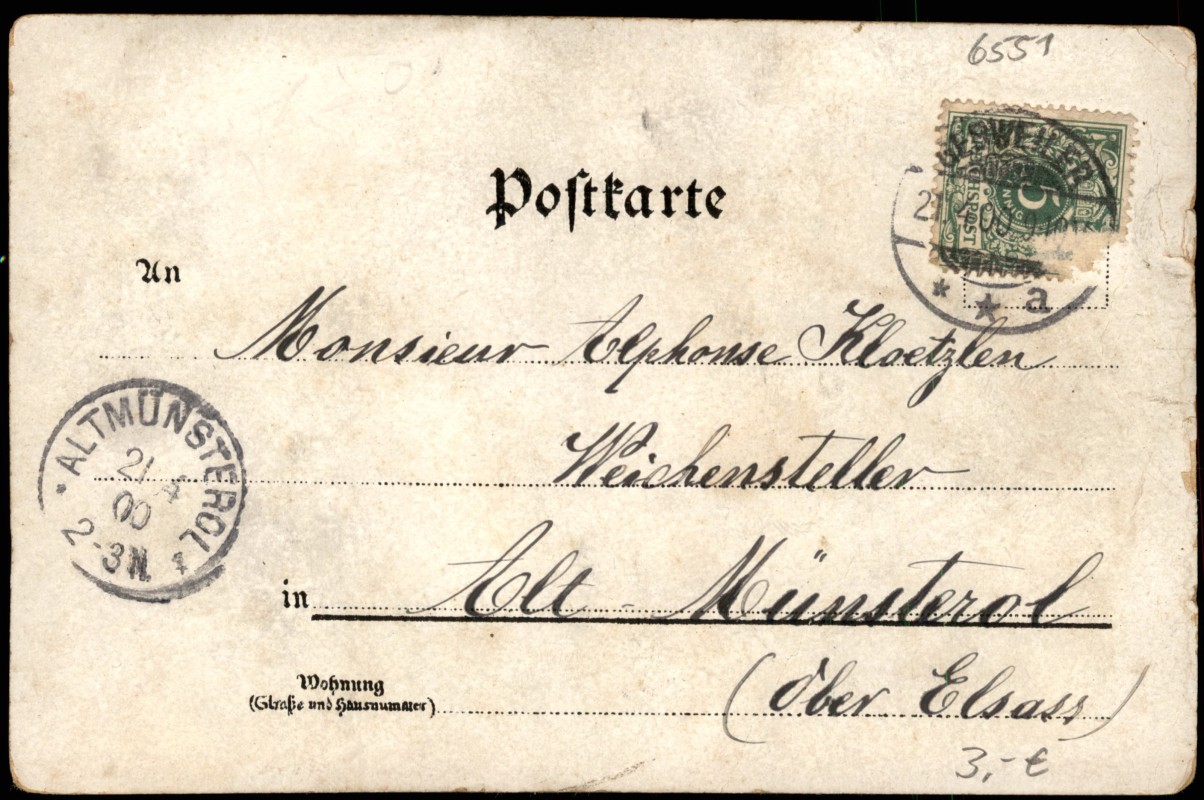 6551
Postkarte
GEBWEILER
21.4.00.9-10
5
REICHSPOST
* * a
An
Monsieur Alphonse Kloetzlen
Weichensteller
ALTMÜNSTEROL
21 4
00
2-3N. 1
in Alt-Münsterol
Wohnung
(Straße und Hausnummer)
(Ober Elsass)
3,- €